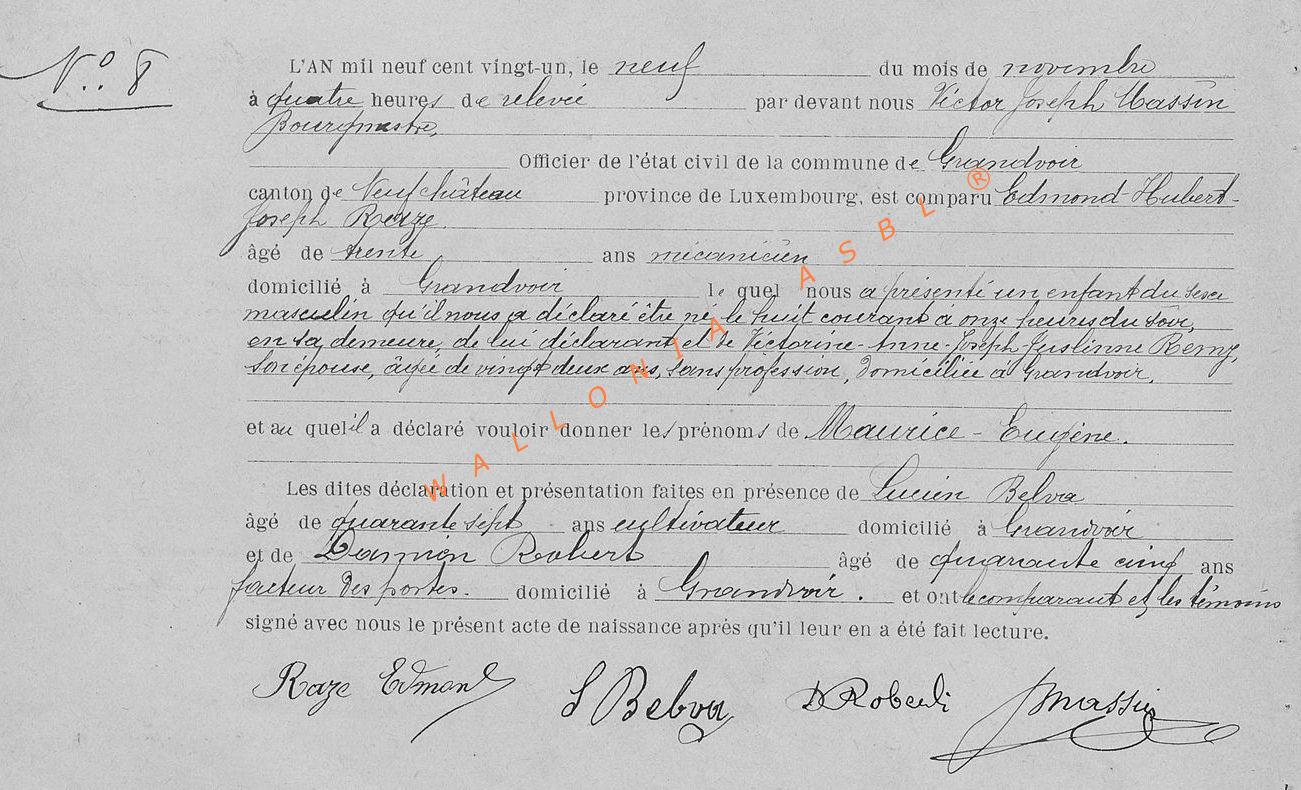 N.º 8
L'AN mil neuf cent vingt-un, le neuf du mois de novembre
à quatre heures de relevée par devant nous Victor Joseph Massin
Bourgmestre,
Officier de l'état civil de la commune de Grandvoir
canton de Neufchâteau province de Luxembourg, est comparu Edmond-Hubert-
Joseph Raze
âgé de trente ans mécanicien
domicilié à Grandvoir le quel nous a présenté un enfant du sexe
masculin qu'il nous a déclaré être né le huit courant à onze heures du soir,
en sa demeure, de lui déclarant et de Victorine-Anne-Joseph-Justinne Remy,
son épouse, âgée de vingt deux ans, sans profession, domiciliée à Grandvoir,
et au quel il a déclaré vouloir donner les prénoms de Maurice-Eugène.
Les dites déclaration et présentation faites en présence de Lucien Belva
âgé de quarante sept ans cultivateur domicilié à Grandvoir
et de Damien Robert âgé de quarante cinq ans
facteur des postes. domicilié à Grandvoir. et ont le comparant et les témoins
signé avec nous le présent acte de naissance après qu'il leur en a été fait lecture.
Raze Edmond L Belva D Robert Massin
WALLONIA ASBL ®